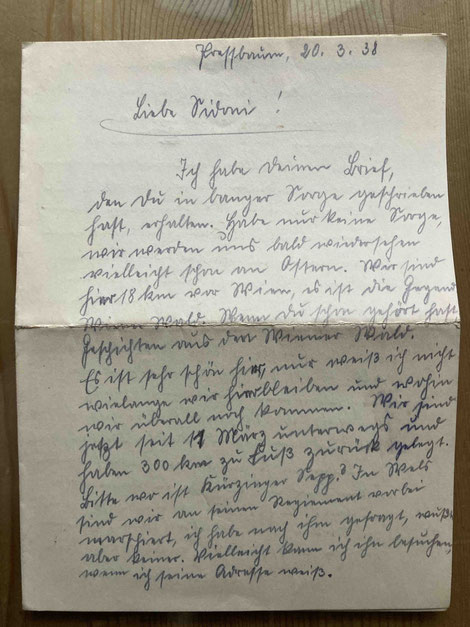 Pressbaum, 20. 3. 38
Liebe Sidoni!
Ich habe deinen Brief,
den Du in banger Sorge geschrieben
hast, erhalten. Habe nur keine Sorge,
wir werden uns bald wiedersehen
vielleicht schon an Ostern. Wir sind
hier 18 km vor Wien, es ist die Gegend
Wiener Wald. Wenn du schon gehört hast
Geschichten aus dem Wiener Wald.
Es ist sehr schön hier, nur weiß ich nicht
wielange wir hierbleiben und wohin
wir überall noch kommen. Wir sind
jetzt seit 11 März unterwegs und
haben 300 km zu Fuß zurück gelegt.
Bitte wo ist Kürzinger Sepp? In Wels
sind wir an seinem Regiement vorbei
marschiert, ich habe nach ihm gefragt, wußte
aber keiner. Vielleicht kann ich ihn besuchen,
wenn ich seine Adresse weiß.